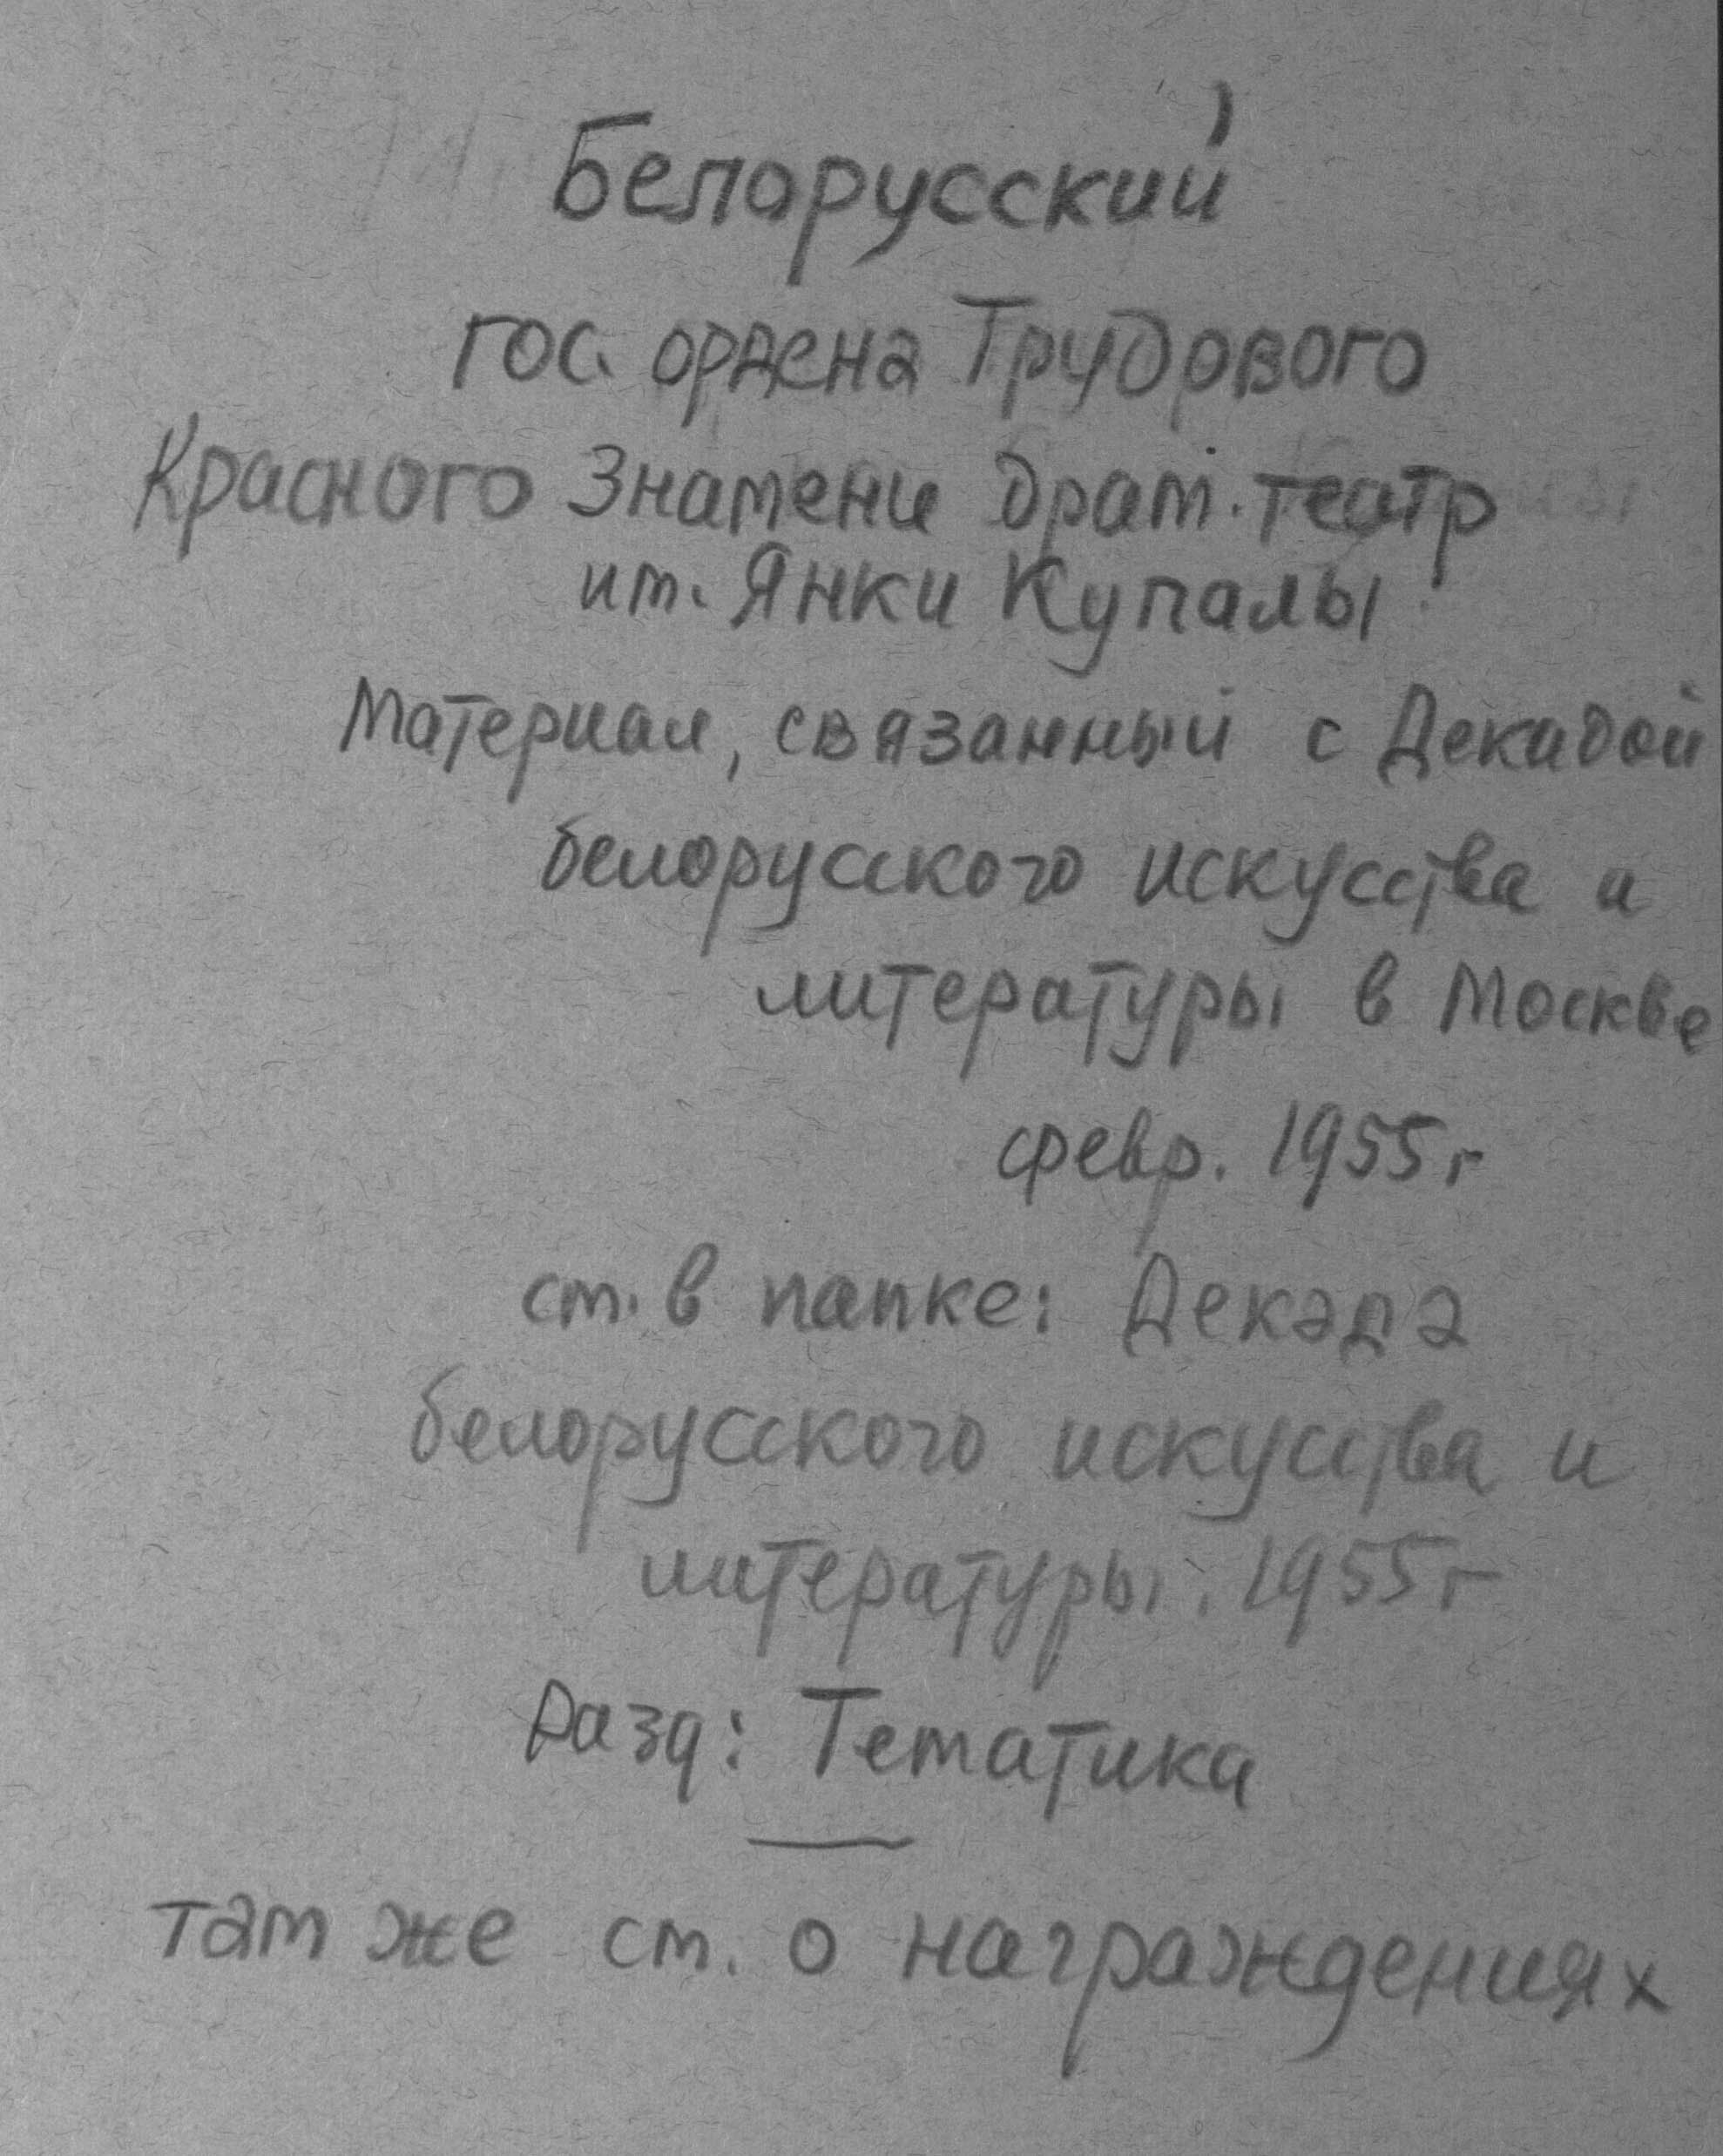 Белорусский
гос. ордена Трудового
Красного Знамени драм. театр
им. Янки Купалы
Материал, связанный с Декадой
белорусского искусства и
литературы в Москве
февр. 1955 г
см. в папке: Декада
белорусского искусства и
литературы. 1955 г
Разд: Тематика
там же см. о награждениях